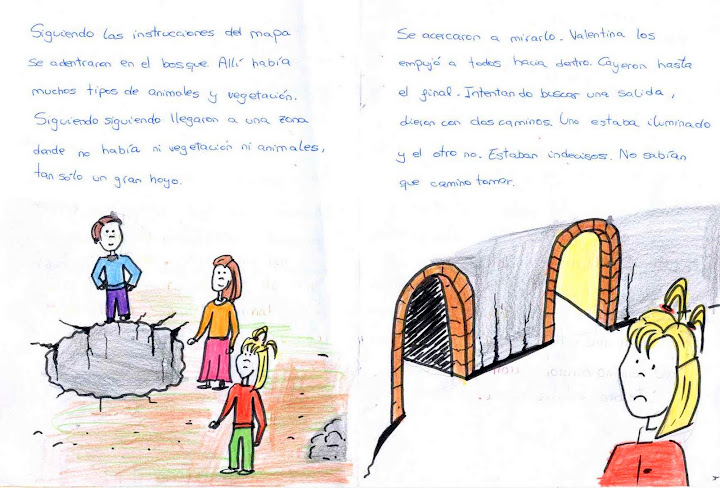 Siguiendo las instrucciones del mapa
se adentraron en el bosque. Allí había
muchos tipos de animales y vegetación.
Siguiendo siguiendo llegaron a una zona
donde no había ni vegetación ni animales,
tan sólo un gran hoyo.
Se acercaron a mirarlo. Valentina los
empujó a todos hacia dentro. Cayeron hasta
el final. Intentando buscar una salida,
dieron con dos caminos. Uno estaba iluminado
y el otro no. Estaban indecisos. No sabían
que camino tomar.